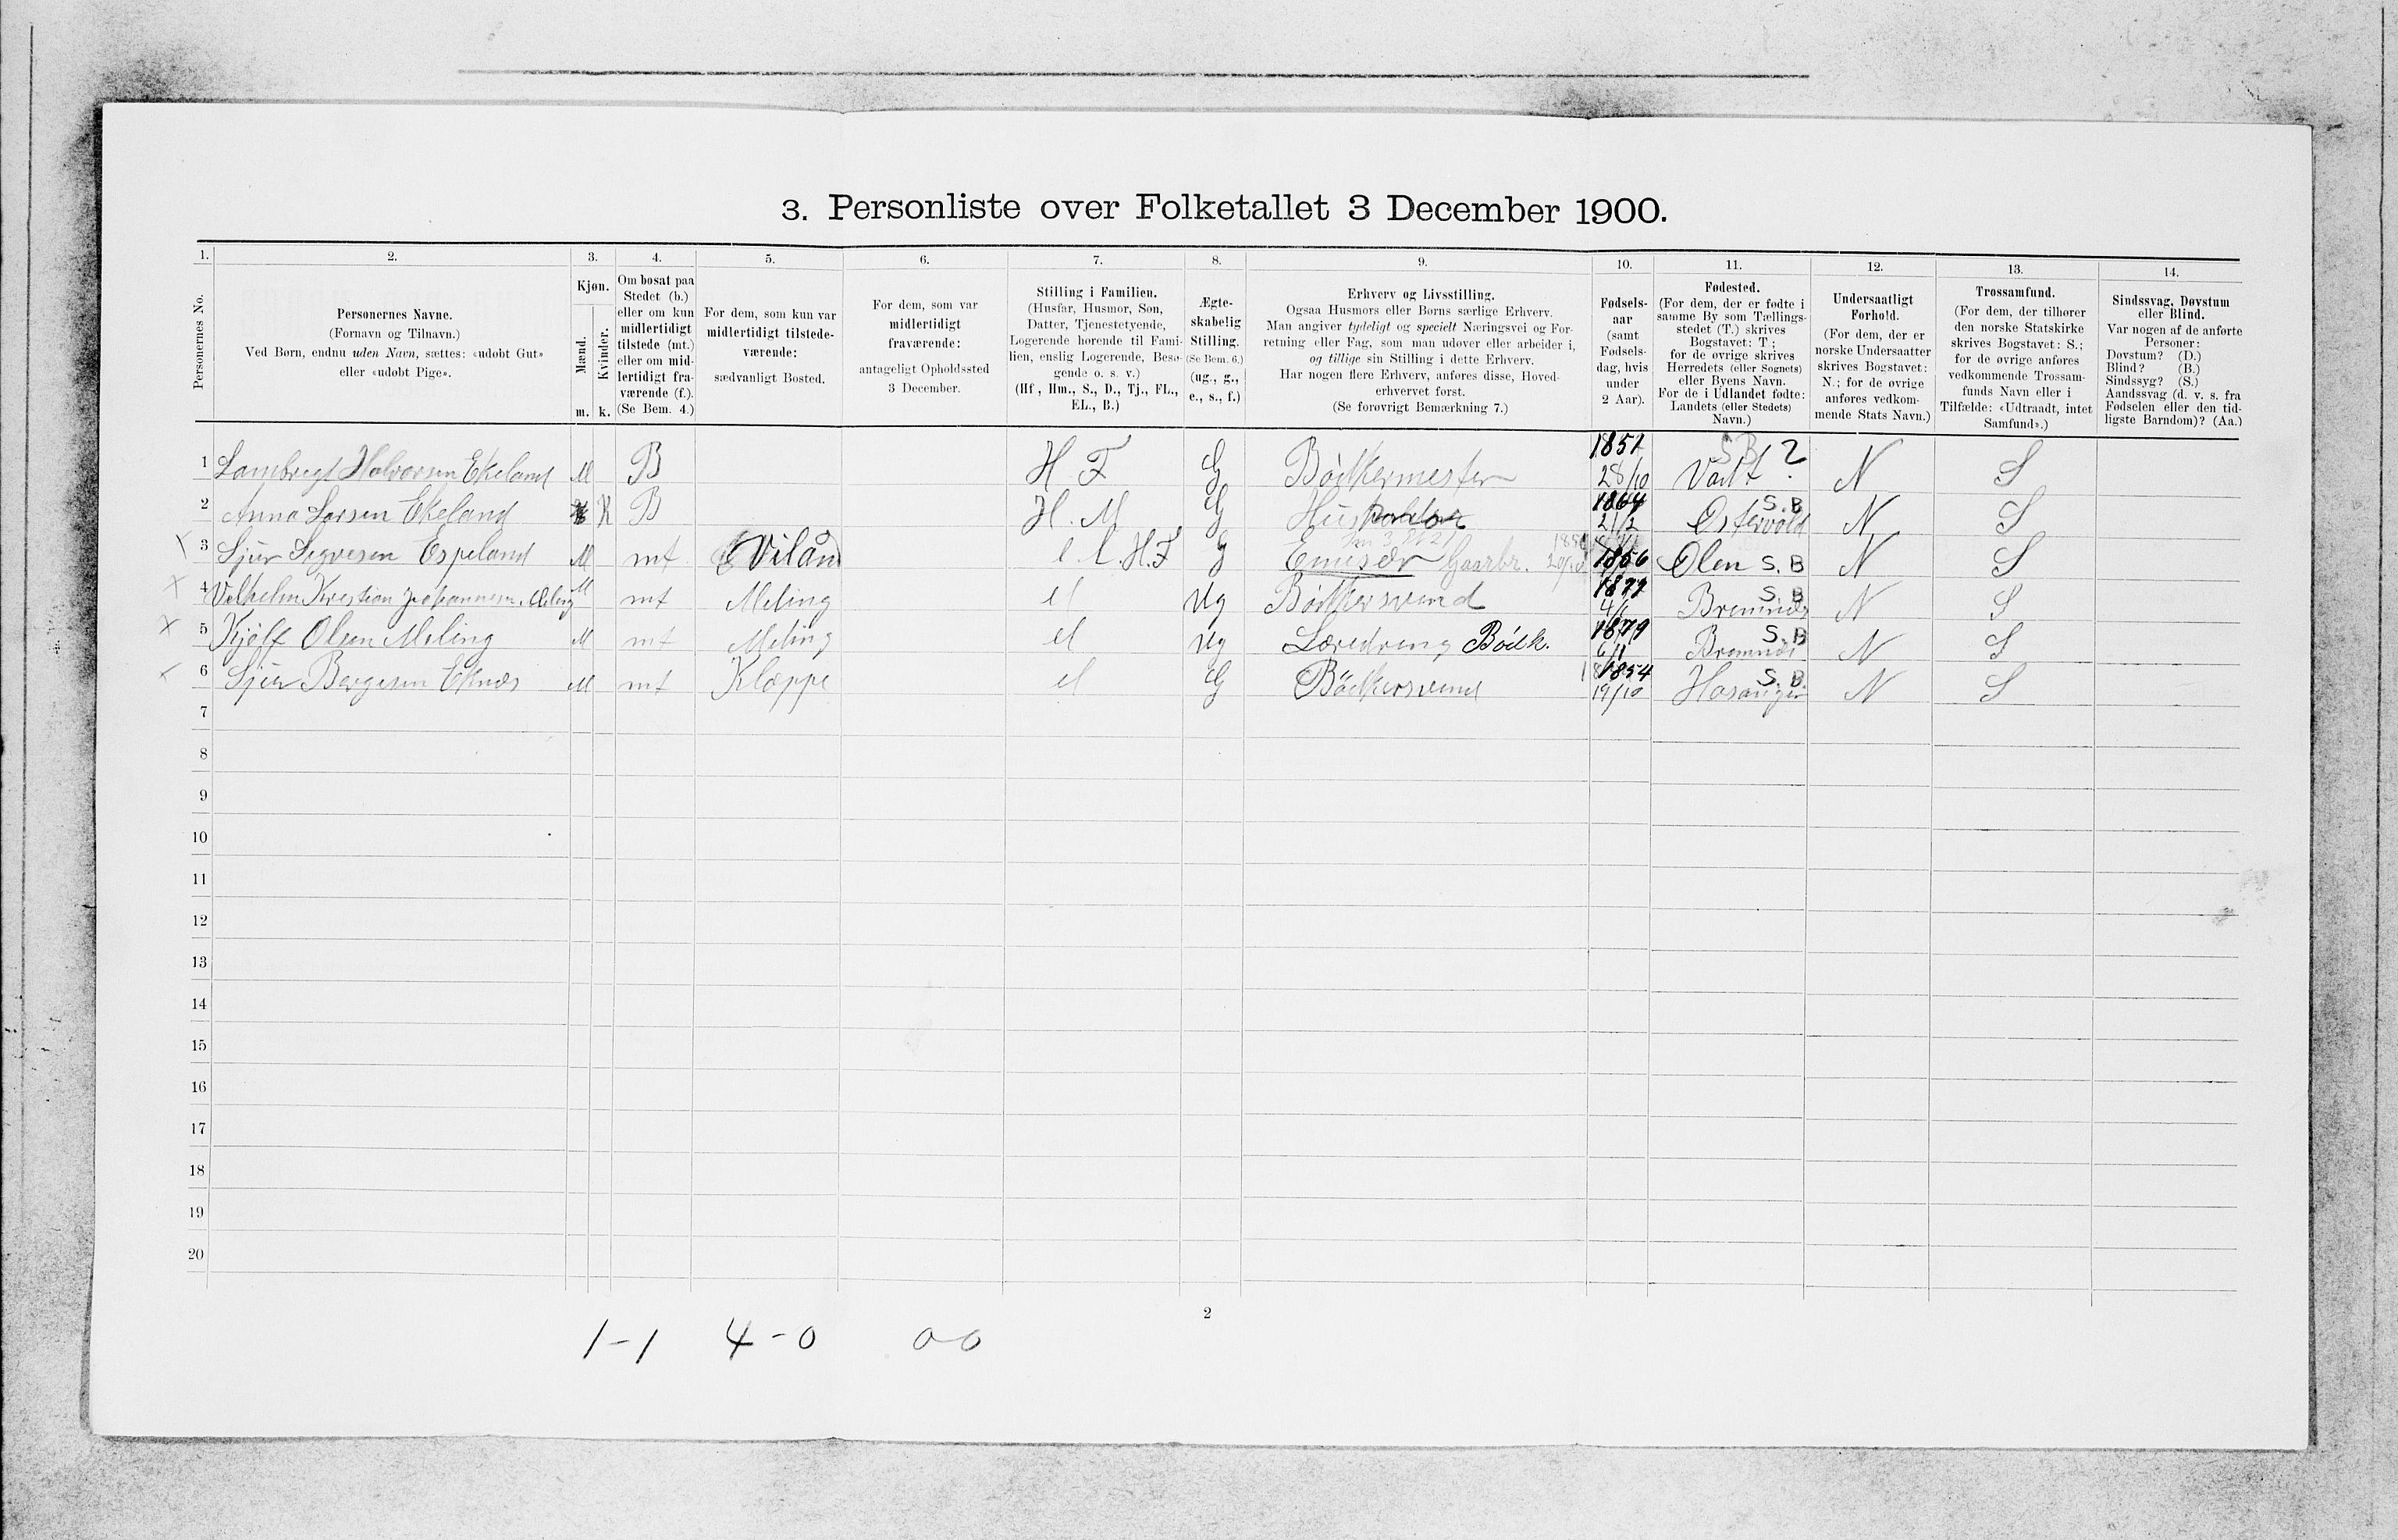 3. Personliste over Folketallet 3 December 1900.
1. 2. 3. 4. 5. 6. 7. 8. 9. 10. 11. 12. 13. 14.
Personernes No.
Personernes Navne.
(Fornavn og Tilnavn.)
Ved Børn, endnu uden Navn, sættes: «udøbt Gut»
eller «udøbt Pige».
Kjøn.
Mænd.
Kvinder.
m. k.
Om bosat paa
Stedet (b.)
eller om kun
midlertidigt
tilstede (mt.)
eller om mid-
lertidigt fra-
værende (f.).
(Se Bem. 4.)
For dem, som kun var
midlertidigt tilstede-
værende:
sædvanligt Bosted.
For dem, som var
midlertidigt
fraværende:
antageligt Opholdssted
3 December.
Stilling i Familien.
(Husfar, Husmor, Søn,
Datter, Tjenestetyende,
Logerende hørende til Fami-
lien, enslig Logerende, Besø-
gende o. s. v.)
(Hf, Hm., S., D., Tj., FL.,
EL., B.)
Ægte-
skabelig
Stilling.
(Se Bem. 6.)
(ug., g.,
e., s., f.)
Erhverv og Livsstilling.
Ogsaa Husmors eller Børns særlige Erhverv.
Man angiver tydeligt og specielt Næringsvei og For-
retning eller Fag, som man udøver eller arbeider i,
og tillige sin Stilling i dette Erhverv.
Har nogen flere Erhverv, anføres disse, Hoved-
erhvervet først.
(Se forøvrigt Bemærkning 7.)
Fødsels-
aar
(samt
Fødsels-
dag, hvis
under
2 Aar).
Fødested.
(For dem, der er fødte i
samme By som Tællings-
stedet (T.) skrives
Bogstavet: T.;
for de øvrige skrives
Herredets (eller Sognets)
eller Byens Navn.
For de i Udlandet fødte:
Landets (eller Stedets)
Navn.)
Undersaatligt
Forhold.
(For dem, der er
norske Undersaatter
skrives Bogstavet:
N.; for de øvrige
anføres vedkom-
mende Stats Navn.)
Trossamfund.
(For dem, der tilhører
den norske Statskirke
skrives Bogstavet: S.;
for de øvrige anføres
vedkommende Trossam-
funds Navn eller i
Tilfælde: «Udtraadt, intet
Samfund».)
Sindssvag, Døvstum
eller Blind.
Var nogen af de anførte
Personer:
Døvstum? (D.)
Blind? (B.)
Sindssyg? (S.)
Aandssvag (d. v. s. fra
Fødselen eller den tid-
ligste Barndom)? (Aa.)
1 Lambregt Halvorsen Ekeland M B H F G Bødkermester 1851 28/10 S B ? N S
2 Anna Larsen Ekeland K B H. M G 1864 21/2 Ostervold S. B N S
3 Sjur Sigvesen Espeland M mt l l. H. F G Emisær Gaarbr. 1856 Olen S. B N S
4 Vilhelm Kristian Johannesen Meling M mt Meling el Ug Bødkersvend 1877 4/1 Bremnæs S. B N S
5 Kjølf Olsen Meling M mt Meling el Ug Læredreng Bødk. 1879 6/1 Bremnæs S. B N S
6 Sjur Bergesen Eknæs M mt Klæppe el G Bødkersvend 1854 19/10 Hosanger S. B. N S
7
8
9
10
11
12
13
14
15
16
17
18
19
20
2
1-1 4-0 0-0